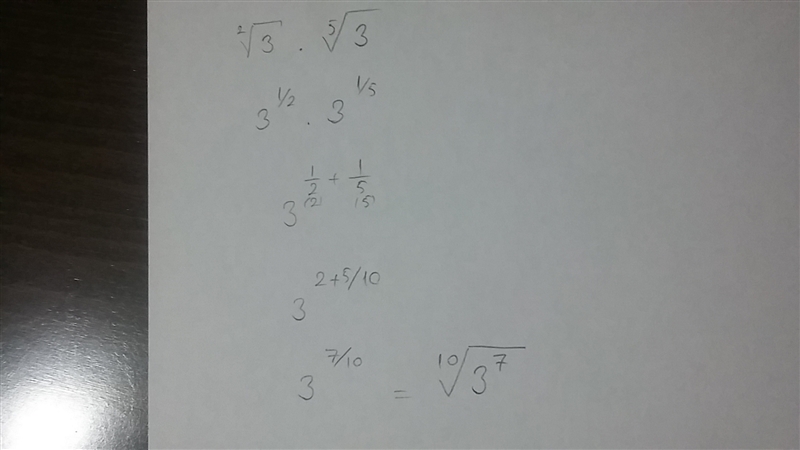 ²√3 . ⁵√3
3^1/2 . 3^1/5
3^1/2 + 1/5
(2) (5)
3^2+5/10
3^7/10 = ¹⁰√3^7